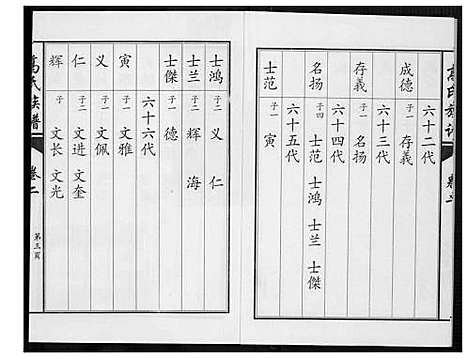 高氏族譜
卷二
六十二代
成德 子一 存義
六十三代
存義 子一 名扬
六十四代
名扬 子四 士范 士鸿 士兰 士傑
六十五代
士范 子一 寅
士鸿 子二 义 仁
士兰 子二 辉 海
士傑 子一 德
六十六代
寅 子一 文雅
义 子一 文佩
仁 子二 文进 文奎
辉 子二 文长 文光
高氏族譜
卷二
第三頁